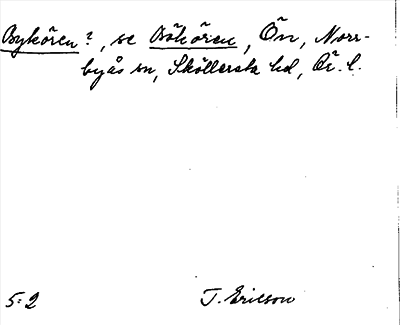 Bykören?, se Bökören, Ön, Norr-
byås sn, Sköllersta hd, Ör. l.
5:2 T. Ericson